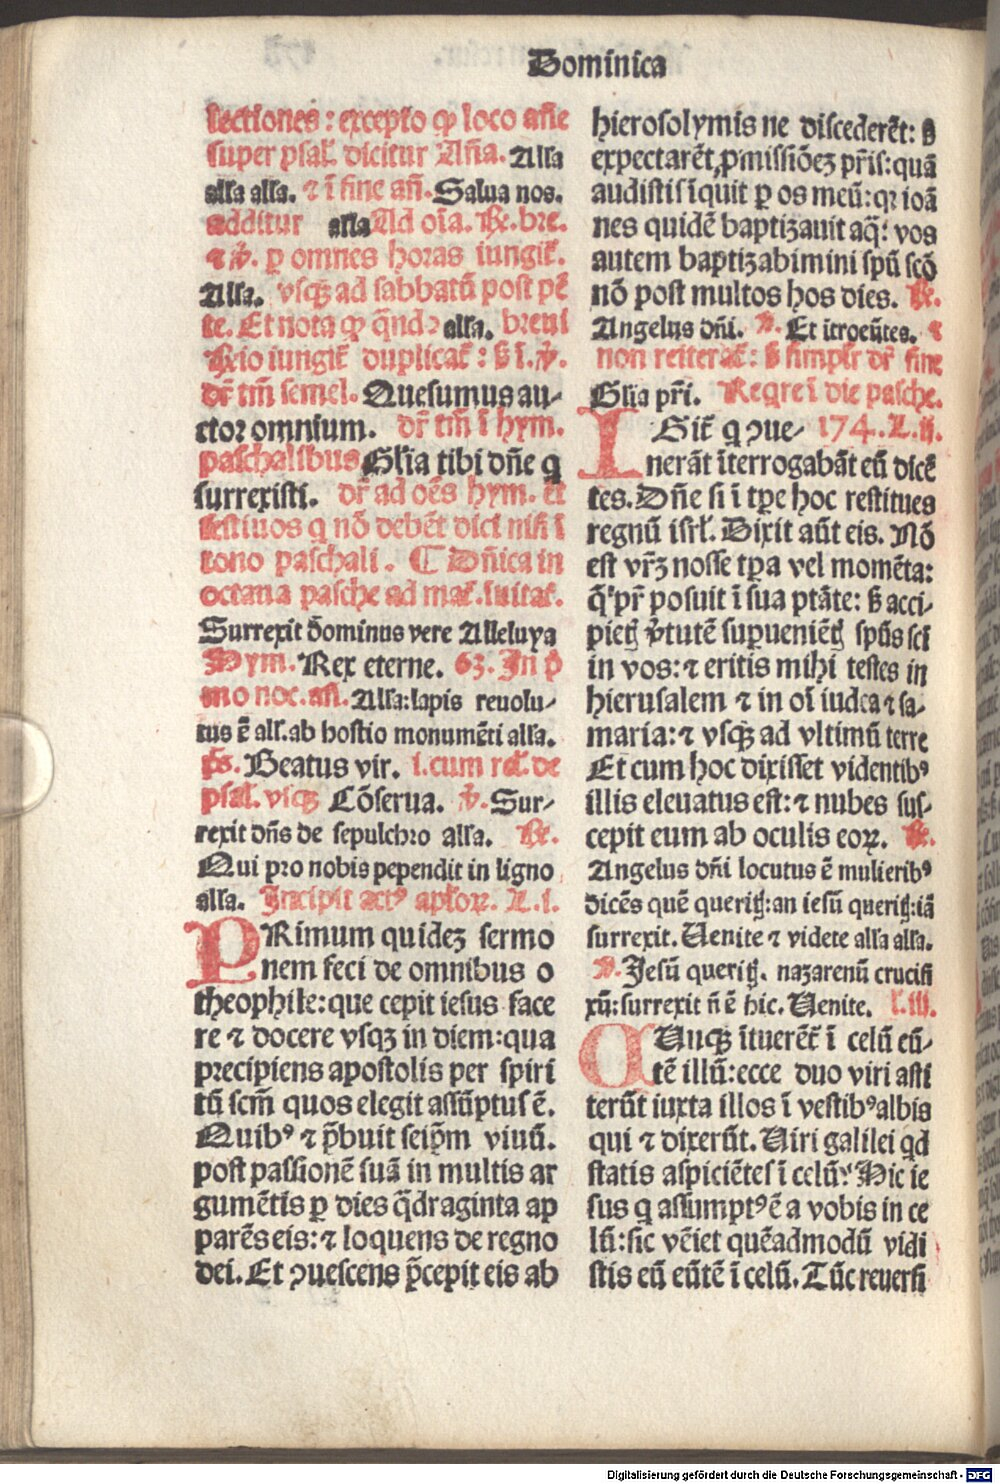 Dominica
lectiones: excepto ꝙ loco añe
super psal. dicitur Aña. Alla
alla alla. ⁊ ĩ fine añ. Salua nos.
additur alla Ad oĩa. ℟. bre.
⁊ ℣. ꝑ omnes horas iungit̃.
Alla. vsqꝫ ad sabbatũ post pẽ
te. Et nota ꝙ q̃ndꝫ alla. breui
℟io iungit̃ duplicat̃: ß ĩ. ℣.
dr̃ tm̃ semel. Quesumus au⸗
ctor omnium. dr̃ tm̃ ĩ hym.
paschalibus Gl̃ia tibi dñe q
surrexisti. dr̃ ad oẽs hym. et
festiuos q nõ debẽt dici nisi ĩ
tono paschali. ¶ Dñica in
octaua pasche ad mat̃. iuitat̃.
Surrexit dominus vere Alleluya
Hym. Rex eterne. 63. In p̃
mo noc. añ. Alla: lapis reuolu⸗
tus ẽ all. ab hostio monumẽti alla.
p̃s. Beatus vir. i. cum rel. de
psal. vsqꝫ Cõserua. ℣. Sur⸗
rexit dñs de sepulchro alla. ℟.
Qui pro nobis pependit in ligno
alla. Incipit actꝰ apl̃oꝝ. L. i.
PRimum quideꝫ sermo
nem feci de omnibus o
theophile: que cepit iesus face
re ⁊ docere vsqꝫ in diem: qua
precipiens apostolis per spiri
tũ scm̃ quos elegit assũptus ẽ.
Quibꝰ ⁊ p̃buit seip̃m viuũ.
post passionẽ suã in multis ar
gumẽtis ꝑ dies q̃draginta ap
parẽs eis: ⁊ loquens de regno
dei. Et ꝯuescens p̃cepit eis ab
hierosolymis ne discederẽt: ß
expectarẽt ꝓmissiõeꝫ pr̃is: quã
audistis ĩquit ꝑ os meũ: qꝛ ioã
nes quidẽ baptizauit aq̃: vos
autem baptizabimini spũ scõ
nõ post multos hos dies. ℟.
Angelus dñi. ℣. Et ĩtroeũtes. ⁊
non reiterat̃: ß simplr̃ dr̃ fine
Gl̃ia pr̃i. Reqre ĩ die pasche.
IGit̃ q ꝯue⸗ 174. L. ii.
nerãt ĩterrogabãt eũ dicẽ
tes. Dñe si ĩ tp̃e hoc restitues
regnũ isrl̃. Dixit aũt eis. Nõ
est vr̃ꝫ nosse tp̃a vel momẽta:
q̃ pr̃ posuit ĩ sua ptãte: ß acci⸗
pietꝭ ṽtutẽ superueniẽtꝭ spũs sci
in vos: ⁊ eritis mihi testes in
hierusalem ⁊ in oĩ iudea ⁊ sa⸗
maria: ⁊ vsqꝫ ad vltimũ terre
Et cum hoc dixisset videntibꝰ
illis eleuatus est: ⁊ nubes sus⸗
cepit eum ab oculis eoꝝ. ℟.
Angelus dñi locutus ẽ mulieribꝰ
dicẽs quẽ queritꝭ: an iesũ queritꝭ: iã
surrexit. Uenite ⁊ videte alla alla.
℣. Jesũ queritꝭ. nazarenũ crucifi
xũ: surrexit ñ ẽ hic. Uenite. l. iii.
CUnqꝫ ĩtuerẽt̃ ĩ celũ eũ⸗
tẽ illũ: ecce duo viri asti
terũt iuxta illos ĩ vestibꝰ albis
qui ⁊ dixerũt. Uiri galilei qd
statis aspiciẽtes ĩ celũ? Hic ie
sus q assumptꝰ ẽ a vobis in ce
lũ: sic vẽiet quẽadmodũ vidi
stis eũ eũtẽ ĩ celũ. Tũc reuersi
Digitalisierung gefördert durch die Deutsche Forschungsgemeinschaft - DFG